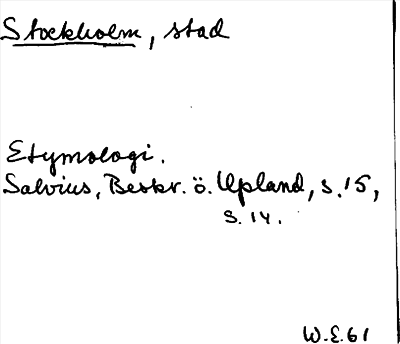 Stockholm, stad
Etymologi.
Salvius, Beskr. ö. Upland, s. 15,
s. 14.
W.E. 61